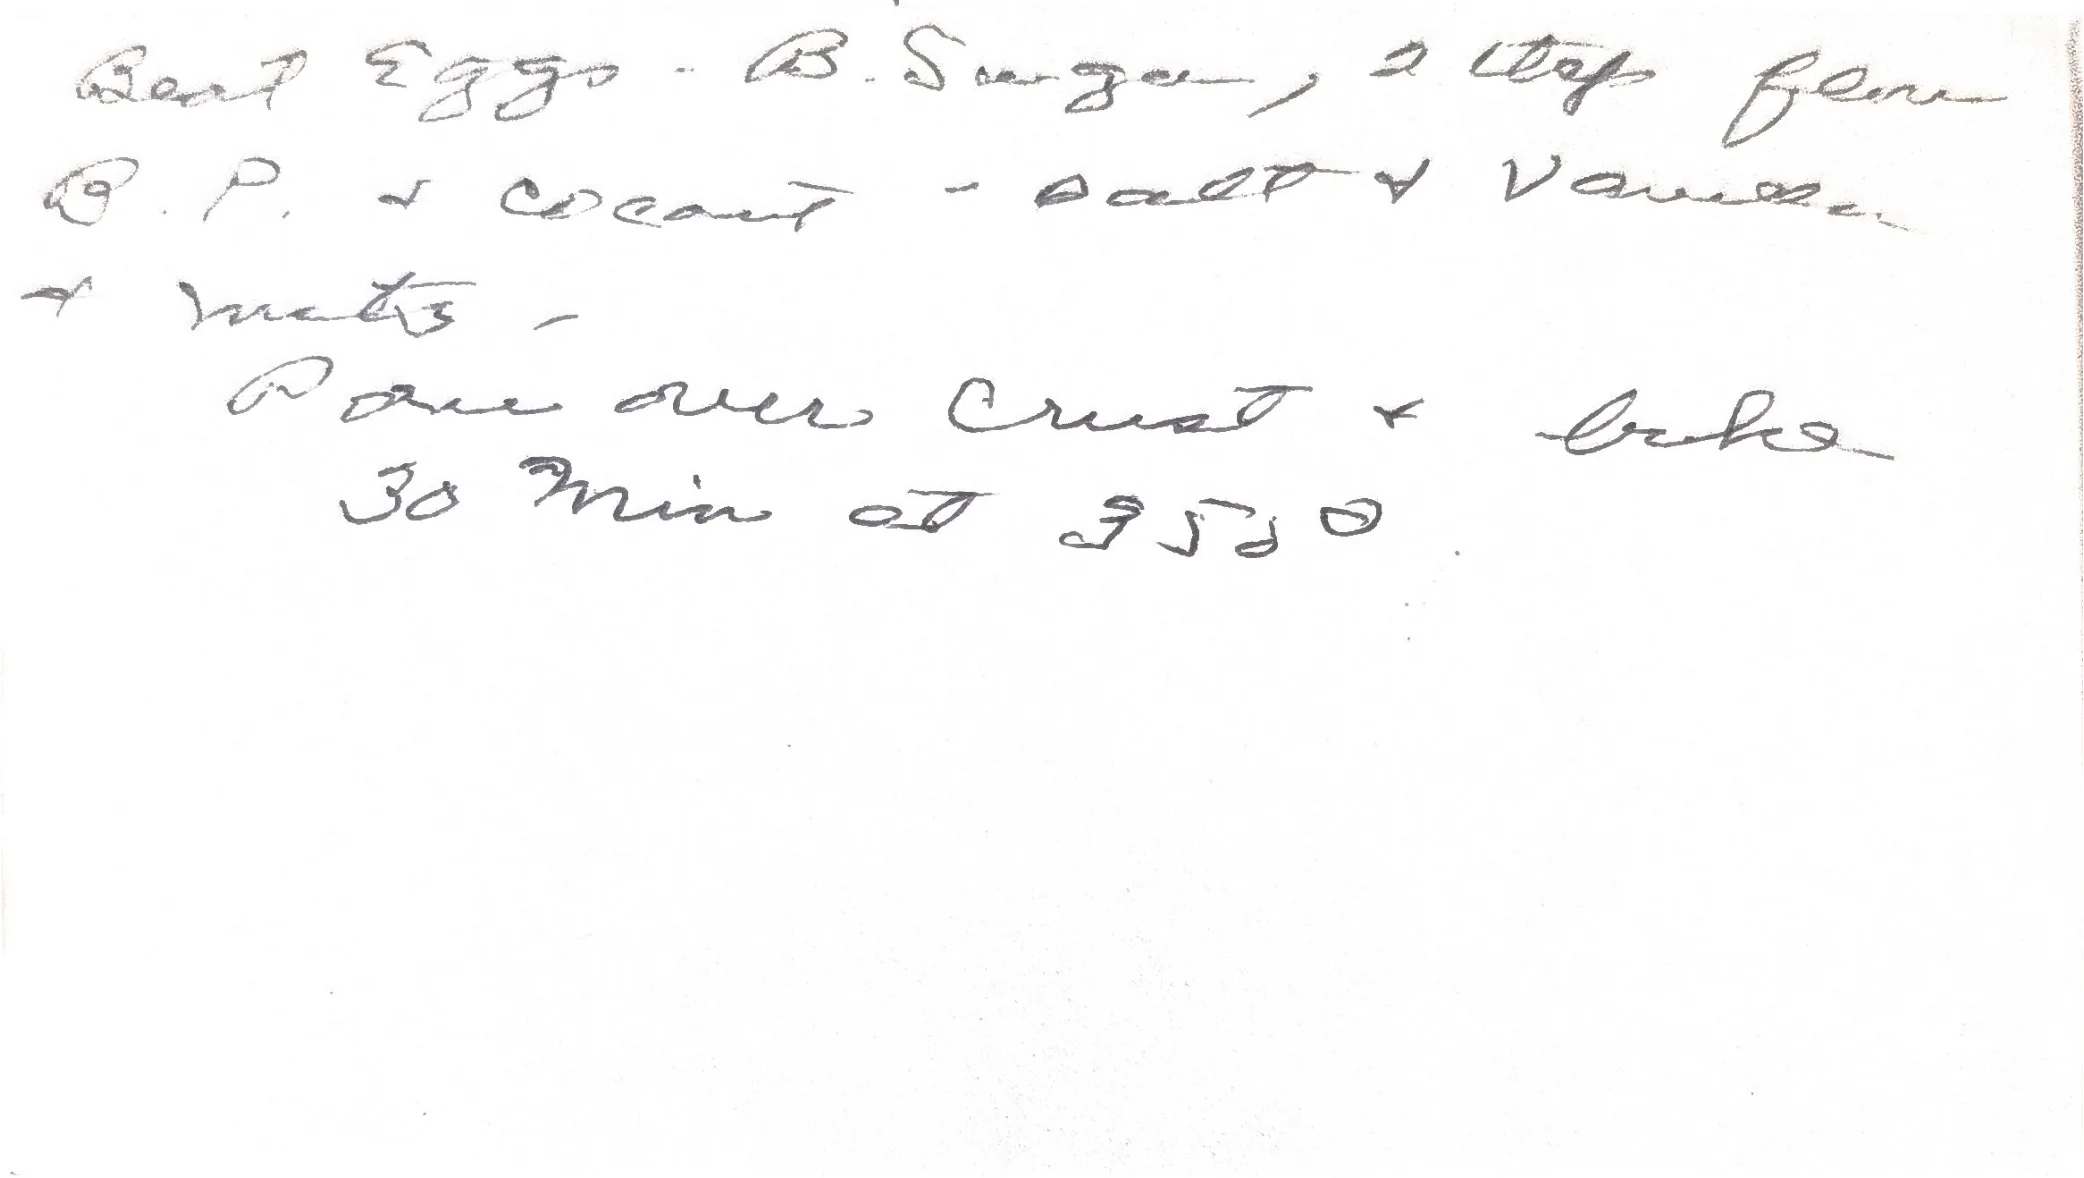 Beat Eggs - B. Sugar, 2 tsp flour
B. P. & cocanut - salt & Vanilla
& nuts -
Pour over Crust & bake
30 Min at 350°